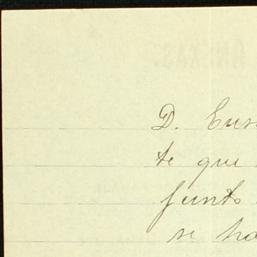 D. Eus
te que
junto
se ha